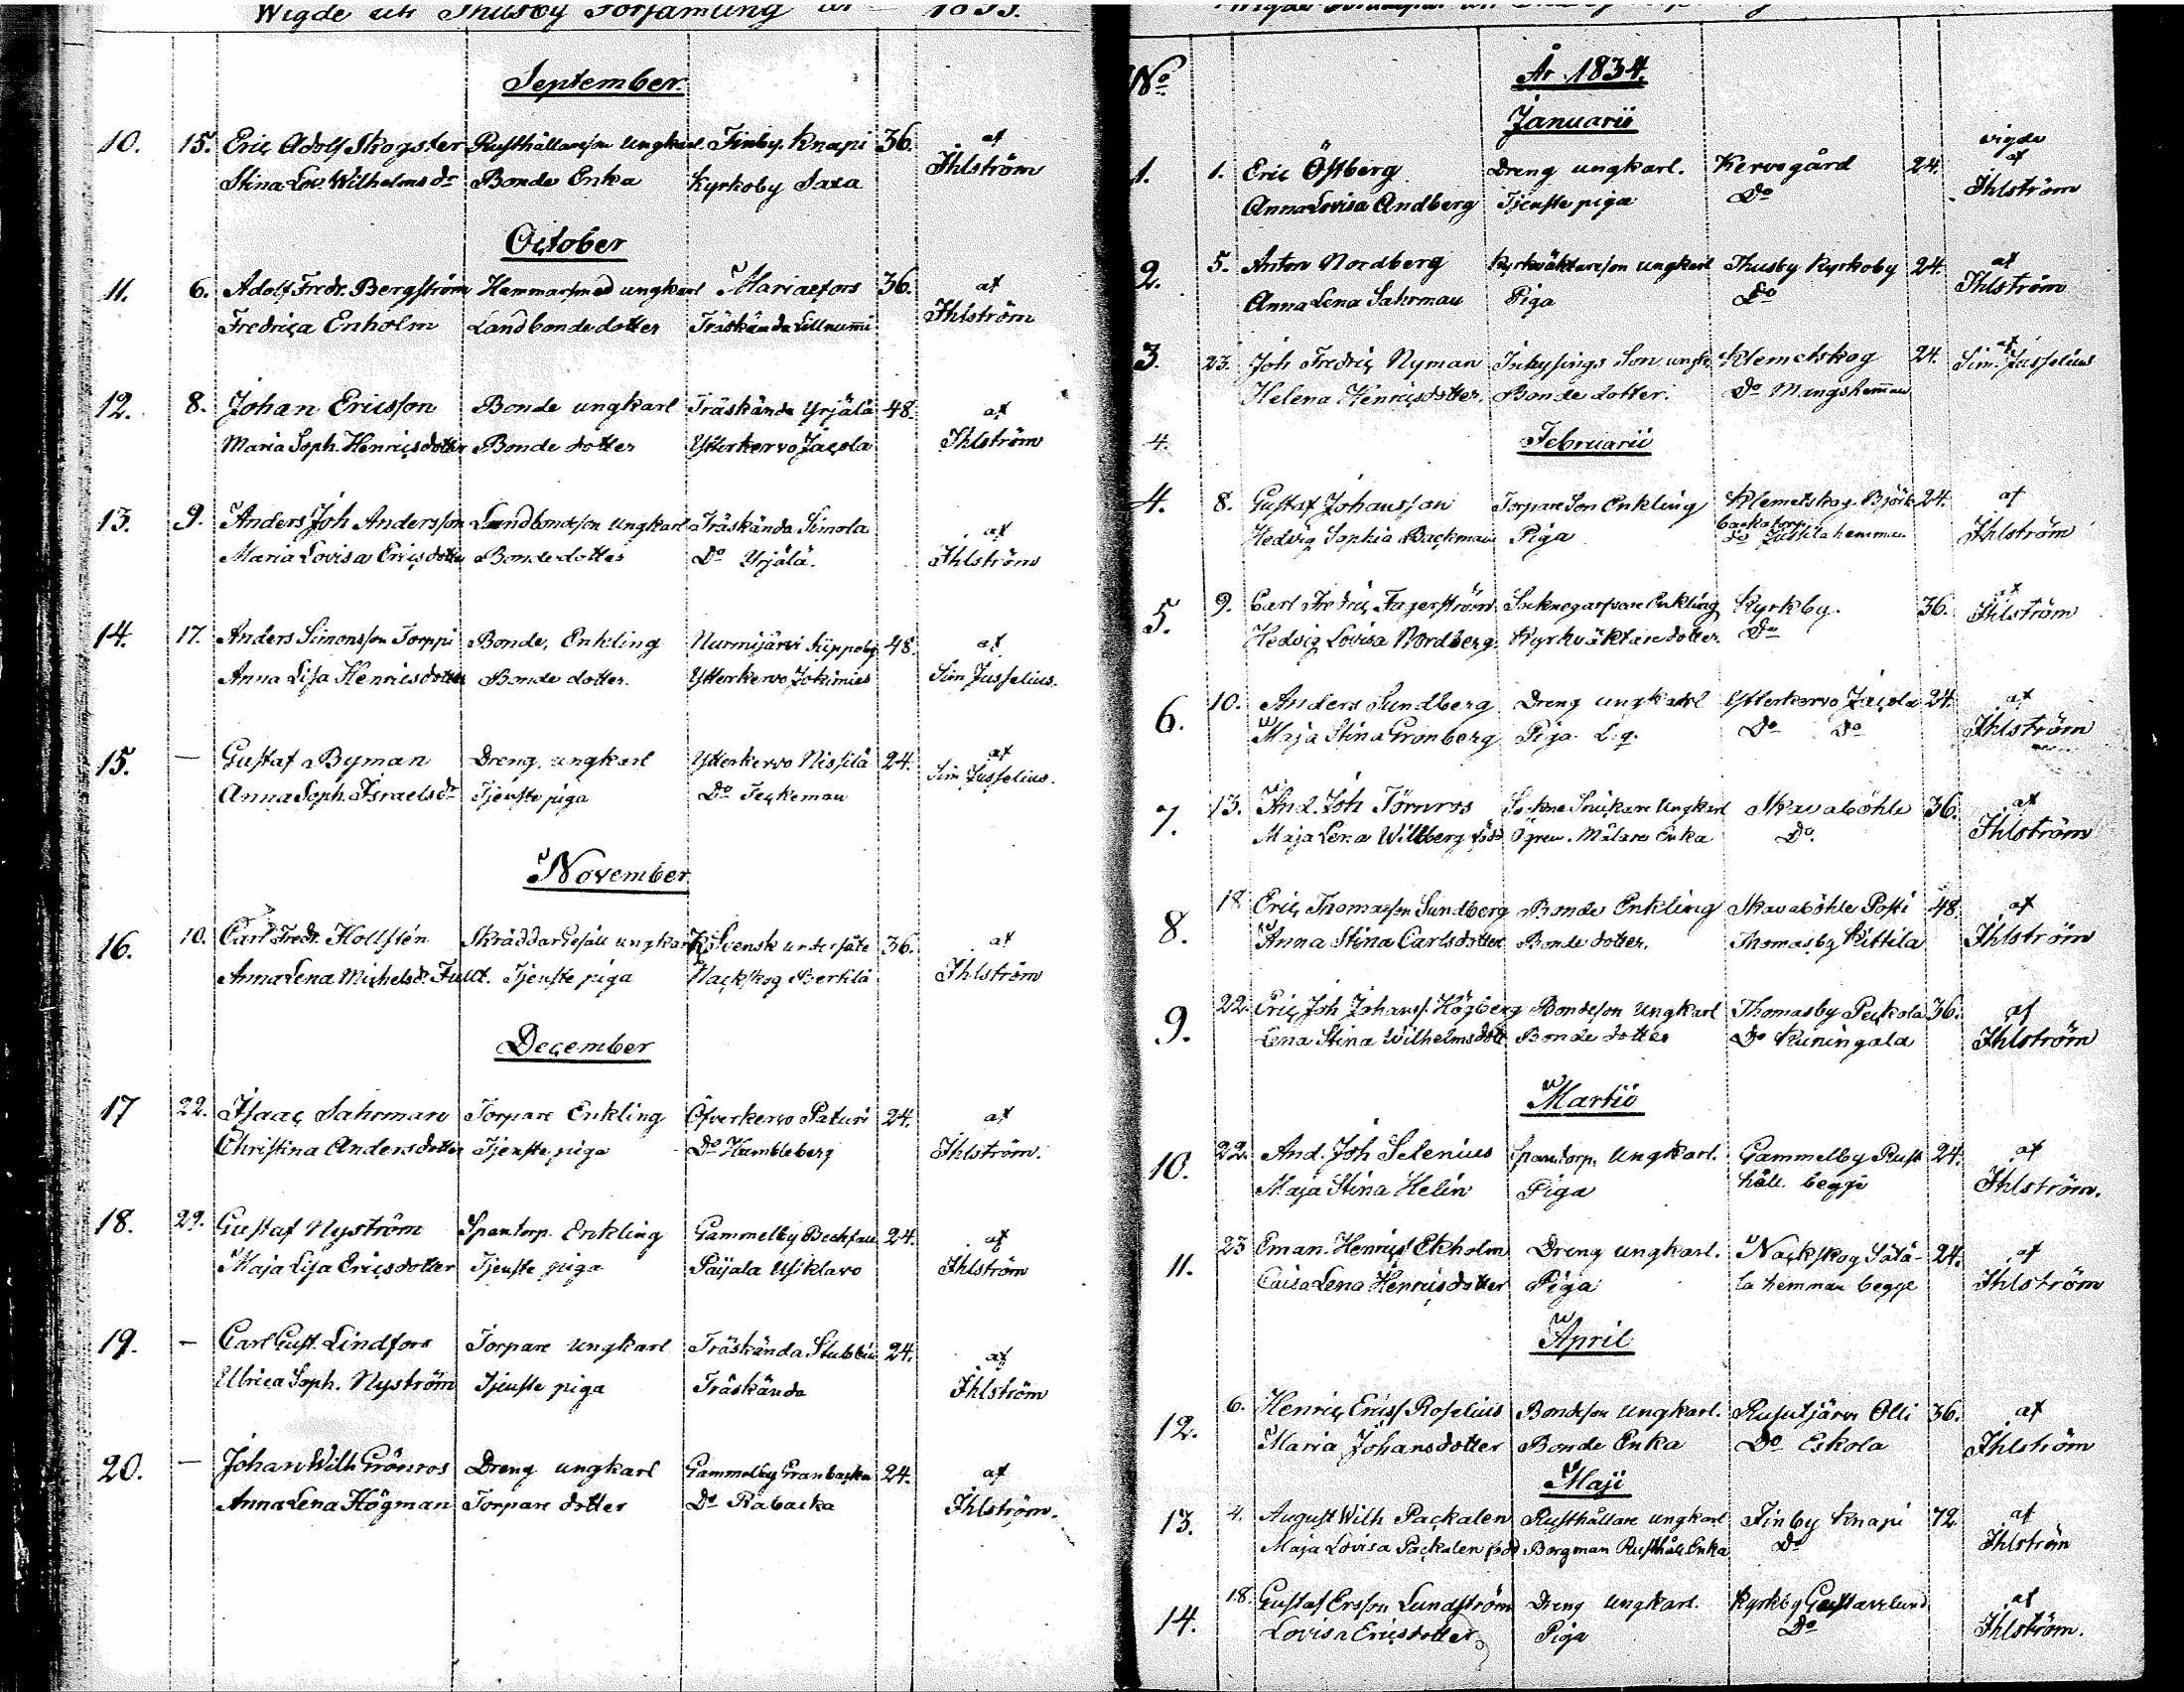 Wigde uti Thusby Församling år 1833.
September.
10. 15. Eric Adolf Skogster Rusthållareson ungkarl. Finby. Knapi 36. af
Stina Lov. Wilhelmsdr Bonde Enka Kyrkoby Saxa Ihlström
October
11. 6. Adolf Fredr. Bergström Hammarsmed ungkarl Mariaefors 36. af
Fredrica Enholm Landbonde dotter Träskända Lillnummi Ihlström
12. 8. Johan Ericsson Bonde ungkarl Träskända Yrjälä 48. af
Maria Soph. Henricsdotter Bonde dotter Ytterkervo Jacola Ihlström
13. 9. Anders Joh Andersson Landbondeson ungkarl Träskända Simola af
Maria Lovisa Ericsdotter Bonde dotter Do Yrjälä. Ihlström
14. 17. Anders Simonsson Torppi Bonde, Enkling Nurmijärvi Siippoby 48. af
Anna Lisa Henricsdotter Bonde dotter. Ytterkervo Jokimies Sim Jusselius.
15. — Gustaf Byman Dreng, ungkarl Ytterkervo Nissilä 24. af
Anna Soph. Israelsdr Tjenste piga Do Teckeman Sim Jusselius.
November
16. 10. Carl Fredr. Hollstén Skräddar Gesäll ungkarl K. Svensk undersåte 36. af
Anna Lena Michelsdr. Fuld. Tjenste piga Nackskog Bertilä Ihlström
December
17 22. Isaac Sahrman Torpare Enkling Öfverkervo Paturi 24. af
Christina Andersdotter Tjenste piga Do Humbleberg Ihlström.
18. 29. Gustaf Nyström Spantorp. Enkling Gammelby 24. af
Maja Lisa Ericsdotter Tjenste piga Paijala Usiklavo Ihlström
19. — Carl Gust. Lindfors Torpare ungkarl Träskända 24. af
Ulrica Soph. Nyström Tjenste piga Träskända Ihlström
20. — Johan Wilh Grönros Dreng ungkarl Gammelby Granbacka 24. af
Anna Lena Högman Torpare dotter Do Råbacka Ihlström.
No År 1834.
Januarii
vigde
1. 1. Eric Östberg Dreng ungkarl. Kervogård 24. af
Anna Lovisa Andberg Tjenste piga Do Ihlström
2. 5. Anton Nordberg Kyrkväktareson ungkarl Thusby Kyrkoby 24. af
Anna Lena Sahrman Piga Do Ihlström
3. 23. Joh Fredric Nyman Inhysings Son ungk. Klemetskog 24. af Sim. Jusselius
Helena Henricsdotter. Bonde dotter. Do Mangshemman
4. Februarii
4. 8. Gustaf Johansson Torpare Son Enkling Klemetskog. Björk 24. af
backatorp
Hedvig Sophia Backman Piga Do Jussila hemman Ihlström
5. 9. Carl Fredric Fagerström Enkling Kyrkby. 36. af
Hedvig Lovisa Nordberg Kyrkväktare dotter Do Ihlström
6. 10. Anders Sundberg Dreng ungkarl Ytterkervo Jacola 24. af
Maja Stina Grönberg Piga L. q. Do Do Ihlström
7. 13. And. Joh Törnros Sockne Snickare Ungkarl Skavaböhle 36. af
Maja Lena Willberg född Ögren. Målare Enka Do. Ihlström
8. 18 Eric Thomasson Sundberg Bonde Enkling Skavaböhle Posti 48. af
Anna Stina Carlsdotter Bonde dotter. Thomasby Kittila Ihlström
9. 22. Eric Joh Johanss. Högberg Bondeson Ungkarl Thomasby Peckola 36. af
Lena Stina Wilhelmsdott Bonde dotter Do Kuningala Ihlström
Martii
10. 22. And. Joh Selenius Spantorp. Ungkarl. Gammelby Rust 24. af
Maja Stina Helin Piga håll. begge Ihlström.
11. 23 Eman. Henric Ekholm Dreng ungkarl. Nackskog Sätä- 24. af
Caisa Lena Henricsdotter Piga la hemman begge Ihlström
April
12. 6. Henric Ericss Roselius Bondeson Ungkarl. Rusutjärvi Olli 36. af
Maria Johansdotter Bonde Enka Do Eskola Ihlström
Maji
13. 4. August Wilh Packalen Rusthållare ungkarl Finby Knapi 72. af
Maja Lovisa Packalen född Borgman Rusthåll. Enka Do Ihlström
14. 18. Gustaf Ersson Lundström Dreng Ungkarl. Kyrkby Gustavelund af
Lovisa Ericsdotter Piga Do Ihlström.